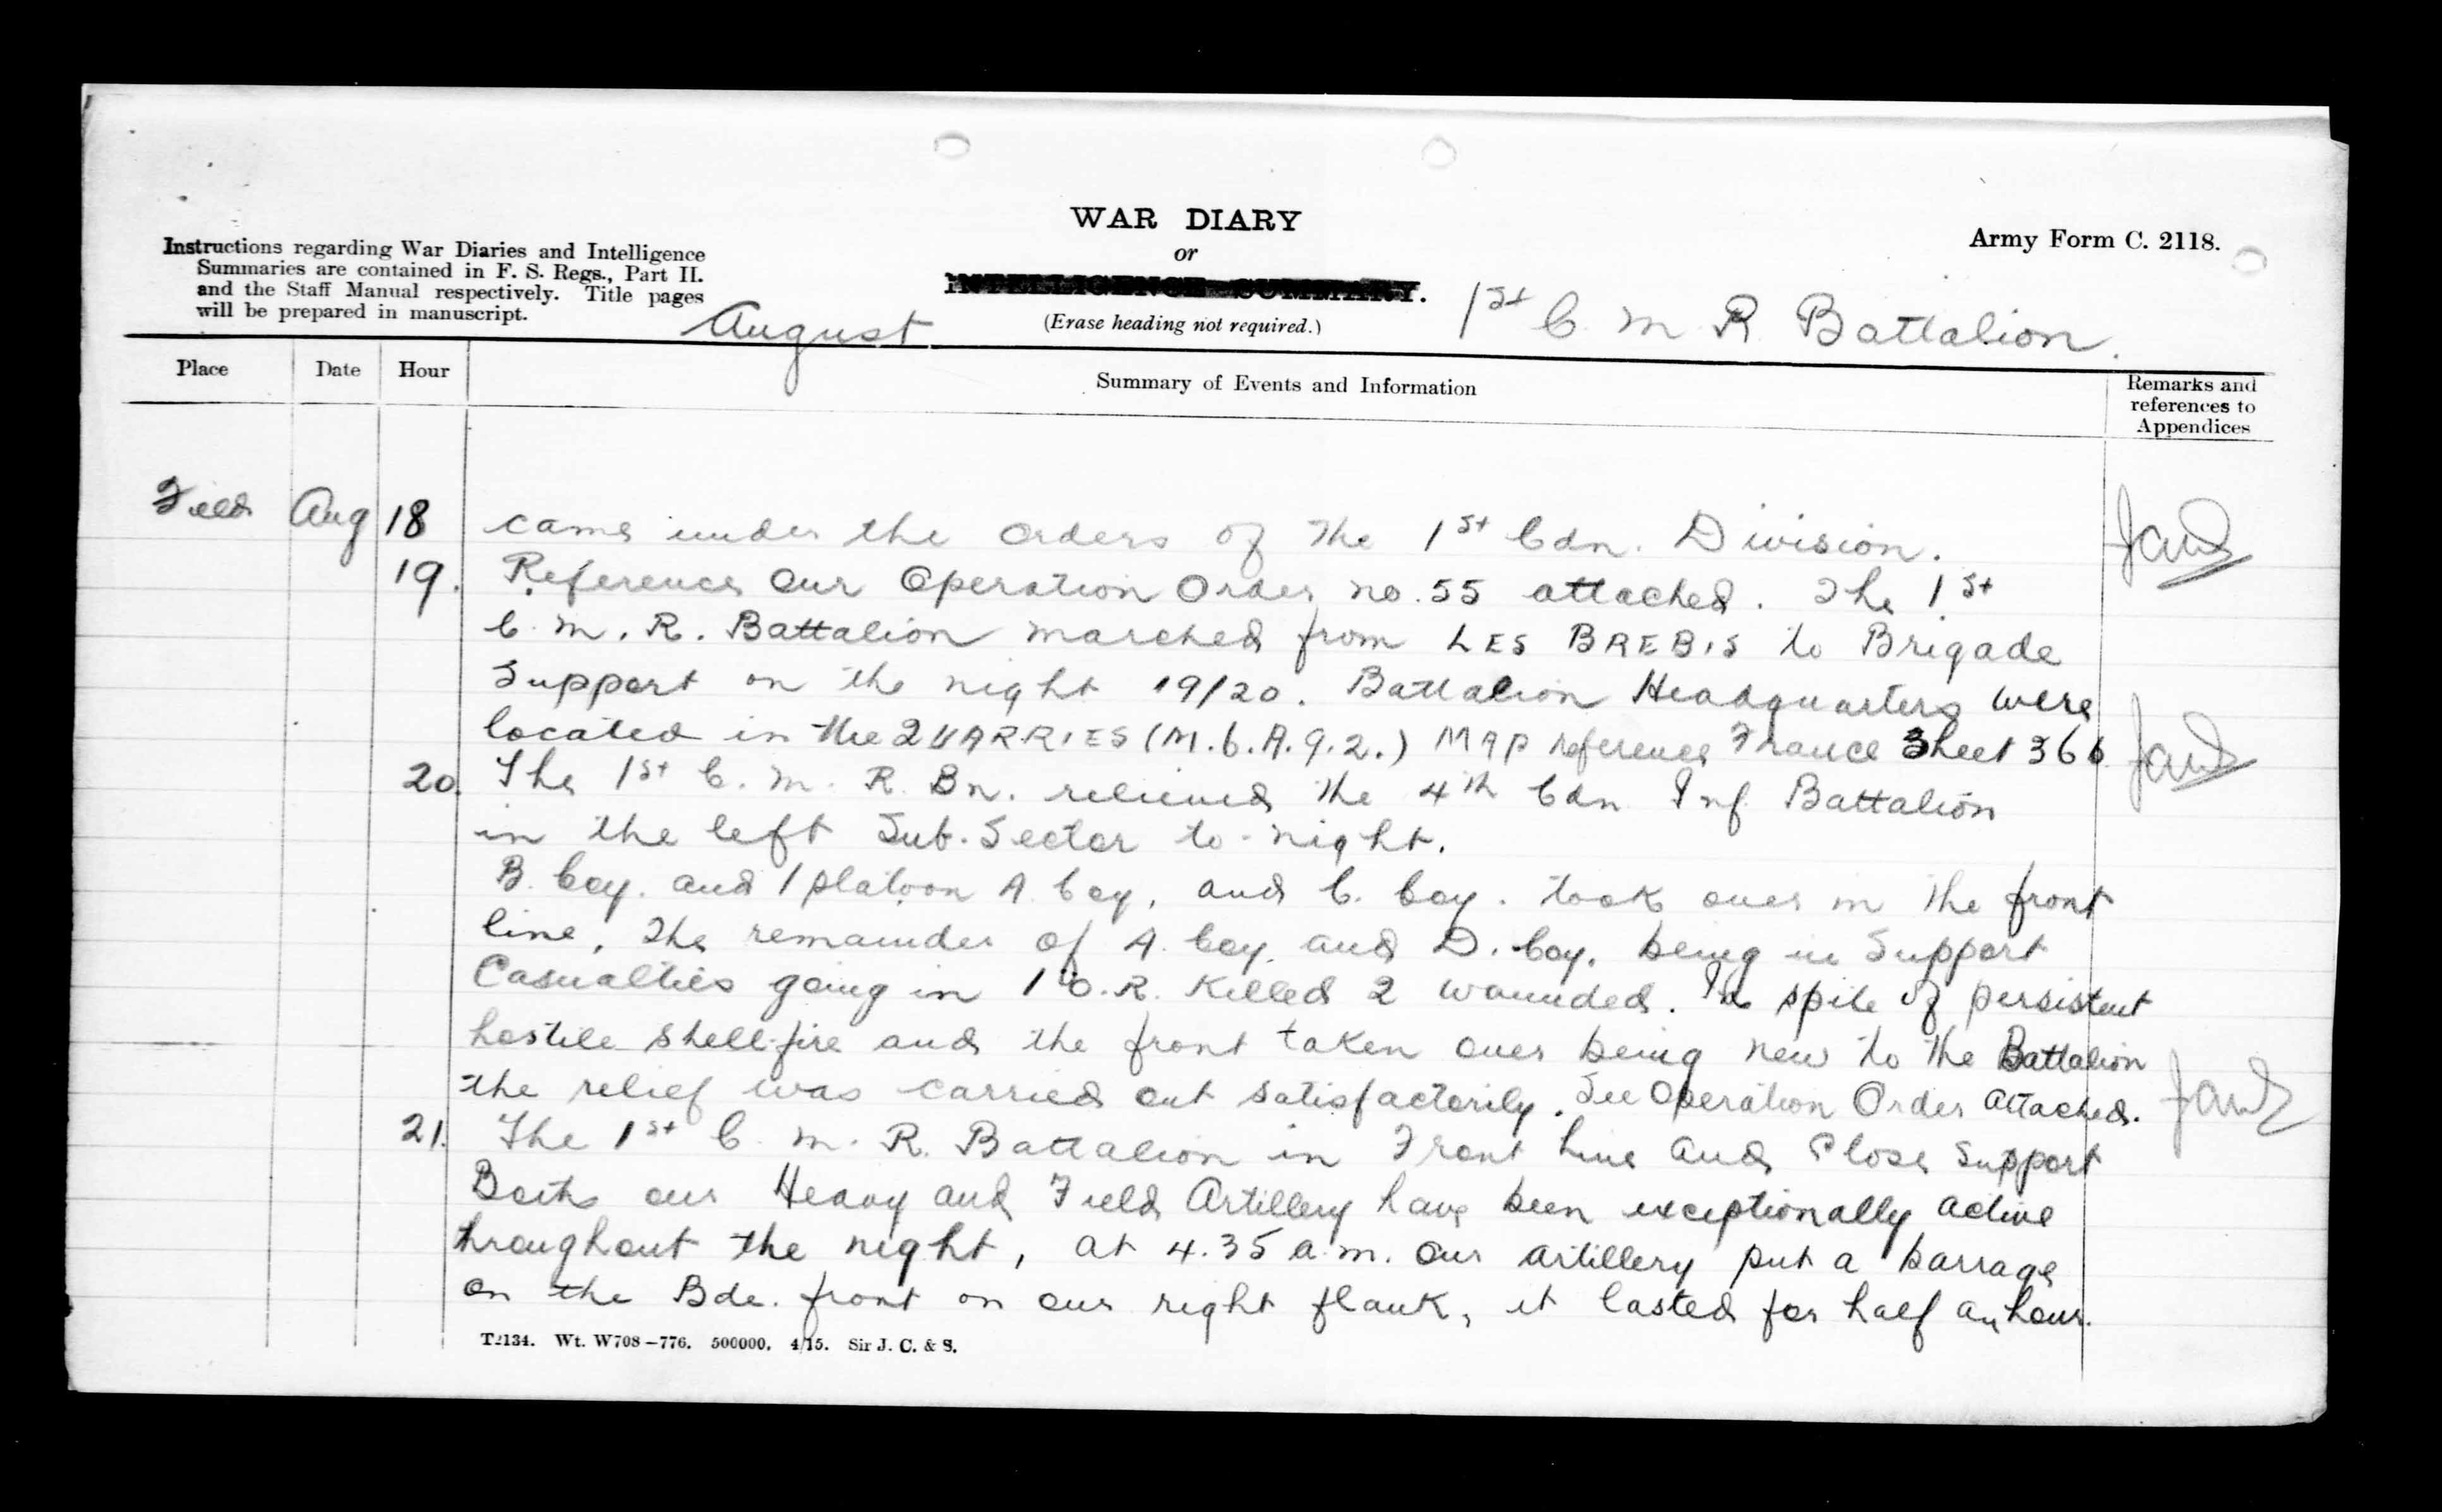 WAR DIARY
or
INTELLIGENCE SUMMARY.
(Erase heading not required.)
Army Form C. 2118.
Instructions regarding War Diaries and Intelligence
Summaries are contained in F. S. Regs., Part II.
and the Staff Manual respectively. Title pages
will be prepared in manuscript.
August
1st C. M. R Battalion.
Place Date Hour Summary of Events and Information Remarks and
references to
Appendices
Field Aug 18 came under the orders of the 1st Cdn. Division.
19. Reference our Operation Order no. 55 attached. The 1st
C. M. R. Battalion marched from LES BREBIS to Brigade
Support on the night 19/20. Battalion Headquarters were
located in the QUARRIES (M.6.A.9.2.) MAP reference France Sheet 36
20. The 1st C. M. R. Bn. relieved the 4th Cdn Inf Battalion
in the left Sub. Sector to-night.
B. Coy. and 1 platoon A Coy, and C. Coy. took over in the front
line, The remainder of A. Coy. and D. Coy. being in Support
Casualties going in 1 O.R. Killed 2 wounded. In spite of persistent
hostile shell-fire and the front taken over being new to the Battalion
the relief was carried out satisfactorily. See Operation Order attached.
21. The 1st C. M. R. Battalion in Front Line and Close Support
Both our Heavy and Field Artillery have been exceptionally active
throughout the night, at 4.35 a.m. our artillery put a barrage
on the Bde. front on our right flank, it lasted for half an hour.
T2134. Wt. W708-776. 500000. 4/15. Sir J. C. & S.